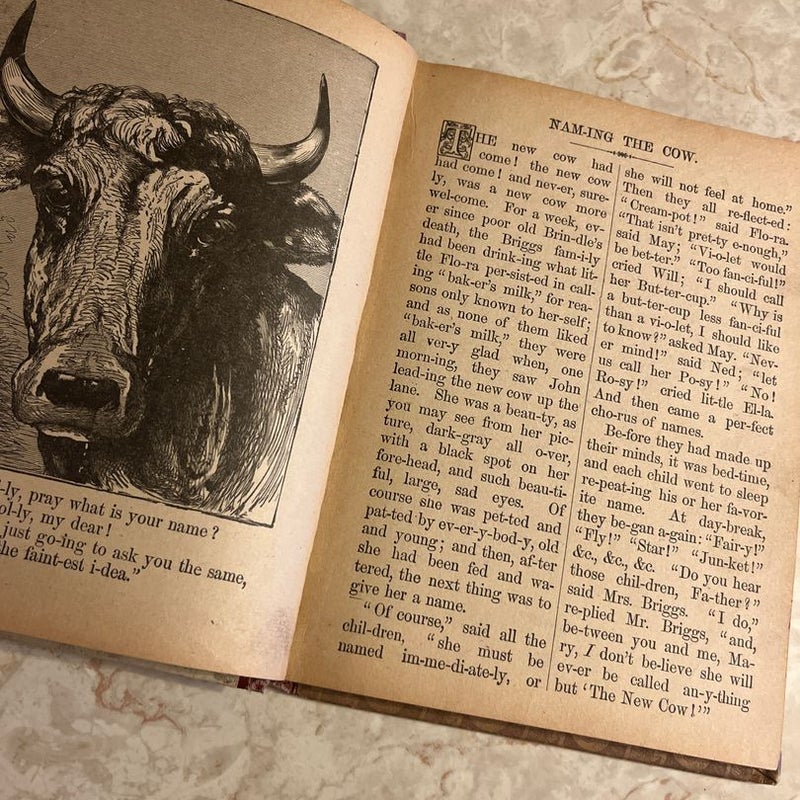 -ly, pray what is your name?
ol-ly, my dear!
just go-ing to ask you the same,
he faint-est i-dea."
NAM-ING THE COW.
THE new cow had
come! the new cow
had come! and nev-er, sure-
ly, was a new cow more
wel-come. For a week, ev-
er since poor old Brin-dle's
death, the Briggs fam-i-ly
had been drink-ing what lit-
tle Flo-ra per-sist-ed in call-
ing "bak-er's milk," for rea-
sons only known to her-self;
and as none of them liked
"bak-er's milk," they were
all ver-y glad when, one
morn-ing, they saw John
lead-ing the new cow up the
lane. She was a beau-ty, as
you may see from her pic-
ture, dark-gray all o-ver,
with a black spot on her
fore-head, and such beau-ti-
ful, large, sad eyes. Of
course she was pet-ted and
pat-ted by ev-er-y-bod-y, old
and young; and then, af-ter
she had been fed and wa-
tered, the next thing was to
give her a name.
"Of course," said all the
chil-dren, "she must be
named im-me-di-ate-ly, or
she will not feel at home."
Then they all re-flect-ed:
"Cream-pot!" said Flo-ra.
"That isn't pret-ty e-nough,"
said May; "Vi-o-let would
be bet-ter." "Too fan-ci-ful!"
cried Will; "I should call
her But-ter-cup." "Why is
a but-ter-cup less fan-ci-ful
than a vi-o-let, I should like
to know?" asked May. "Nev-
er mind!" said Ned; "let
us call her Po-sy!" "No!
Ro-sy!" cried lit-tle El-la.
And then came a per-fect
cho-rus of names.
Be-fore they had made up
their minds, it was bed-time,
and each child went to sleep
re-peat-ing his or her fa-vor-
ite name. At day-break,
they be-gan a-gain: "Fair-y!"
"Fly!" "Star!" "Jun-ket!"
&c., &c., &c. "Do you hear
those chil-dren, Fa-ther?"
said Mrs. Briggs. "I do,"
re-plied Mr. Briggs, "and,
be-tween you and me, Ma-
ry, I don't be-lieve she will
ev-er be called an-y-thing
but 'The New Cow!'"